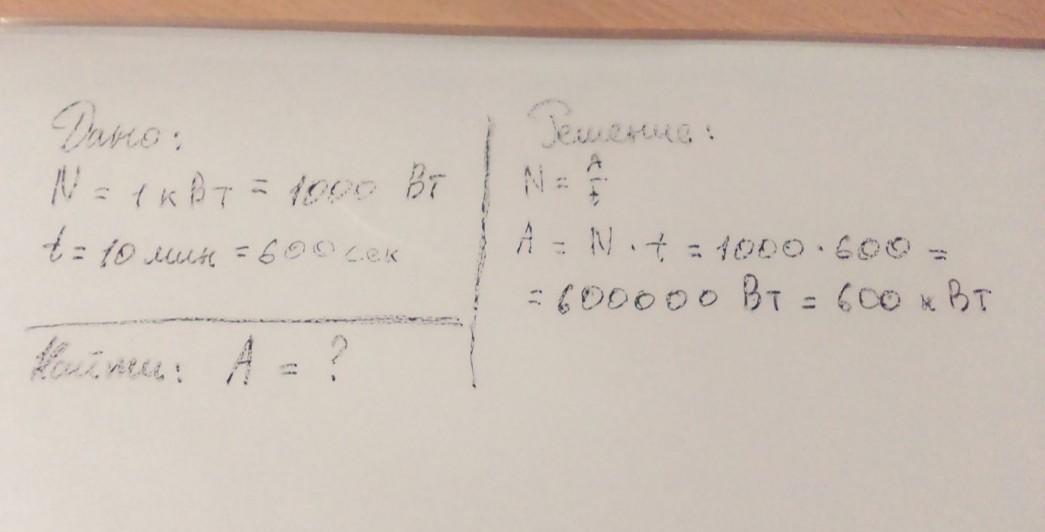 Дано:
N = 1 кВт = 1000 Вт
t = 10 мин = 600 сек
Найти: A = ?
Решение:
N = A/t
A = N · t = 1000 · 600 =
= 600000 Вт = 600 кВт